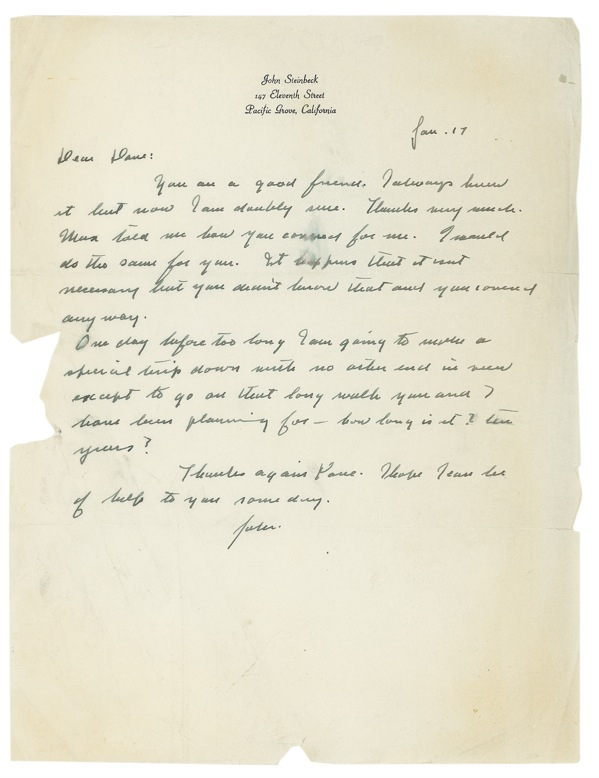 John Steinbeck
147 Eleventh Street
Pacific Grove, California
Jan. 17
Dear Dave:
You are a good friend. I always knew
it but now I am doubly sure. Thanks very much.
Max told me how you covered for me. I would
do the same for you. It happens that it isnt
necessary but you didn't know that and you covered
any way.
One day before too long I am going to make a
special trip down with no other end in view
except to go on that long walk you and I
have been planning for — how long is it? ten
years?
Thanks again Dave. I hope I can be
of help to you some day.
John.